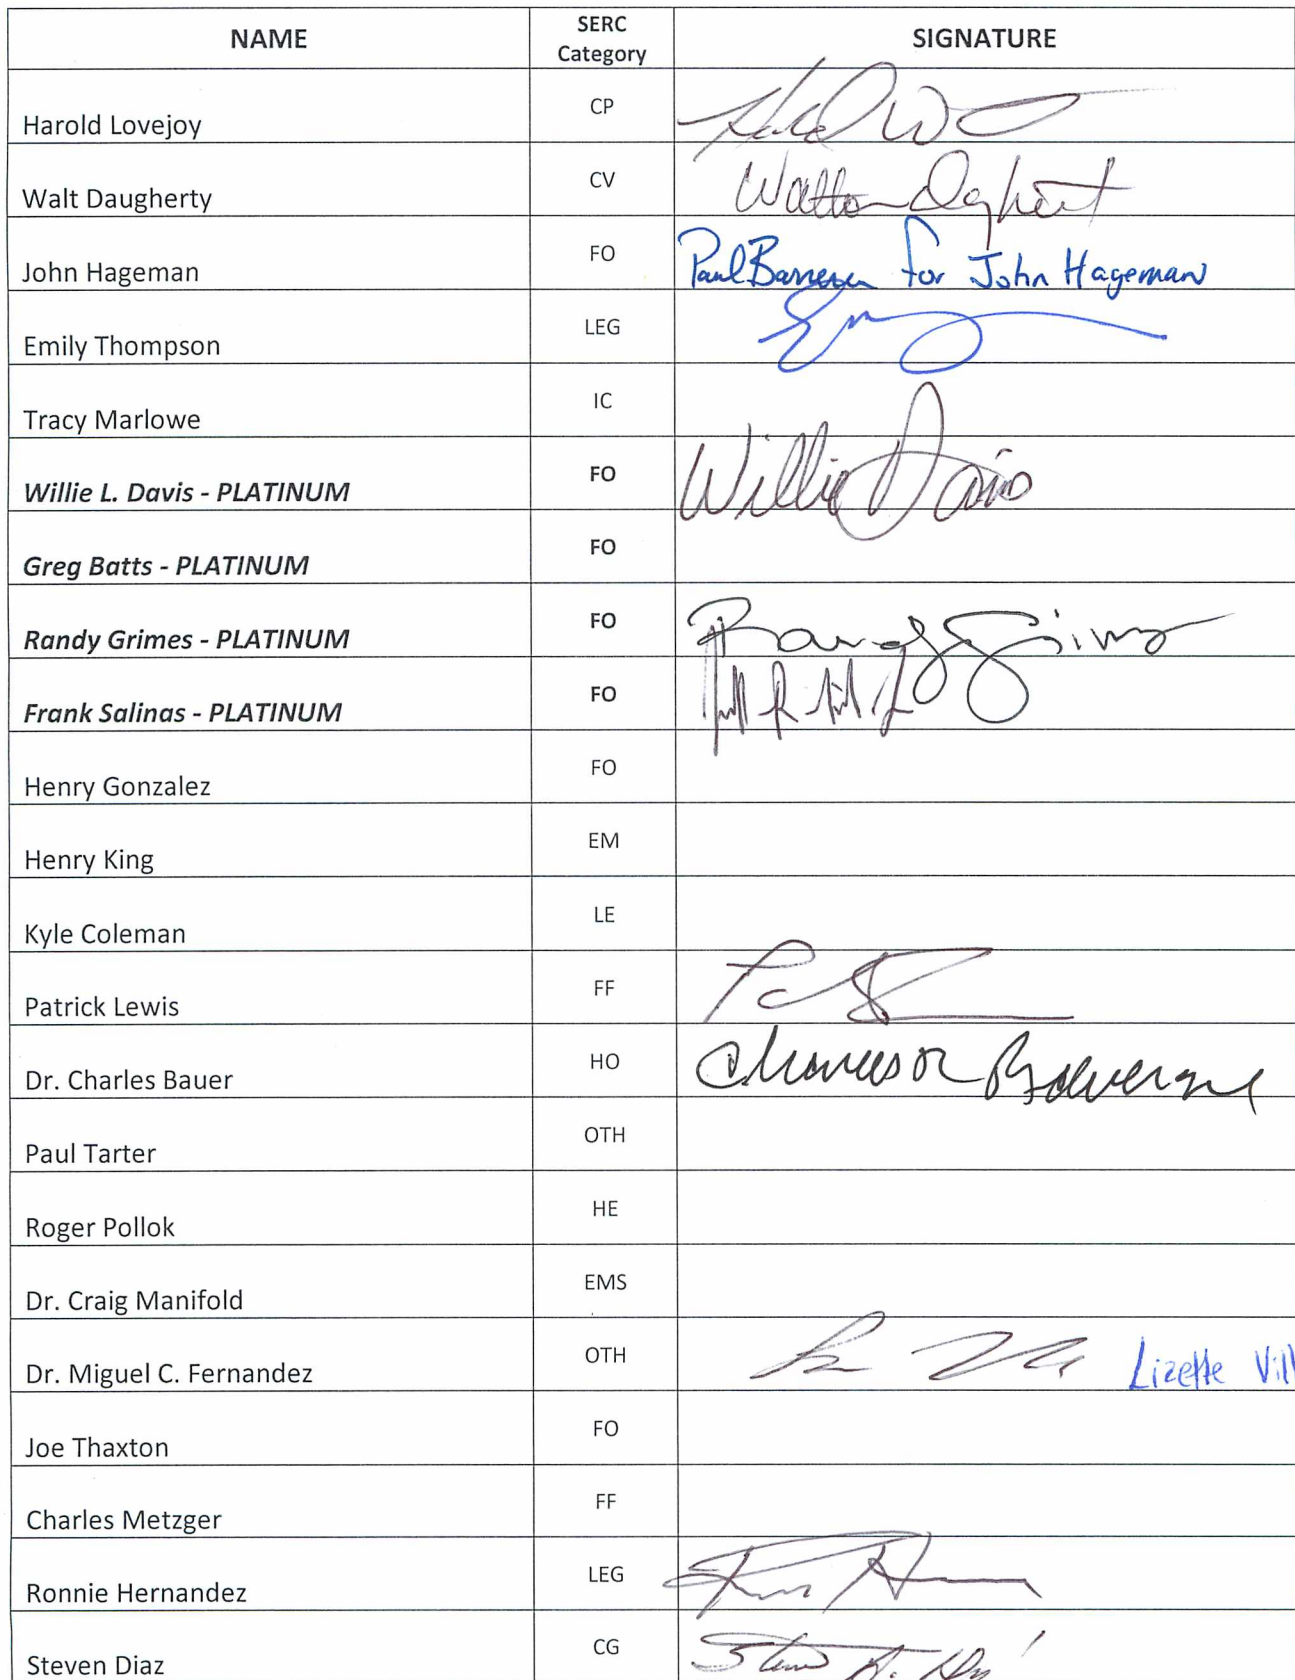 NAME SERC Category SIGNATURE
Harold Lovejoy CP
Walt Daugherty CV Walton
John Hageman FO Paul for John Hageman
Emily Thompson LEG
Tracy Marlowe IC
Willie L. Davis - PLATINUM FO Willie Davis
Greg Batts - PLATINUM FO
Randy Grimes - PLATINUM FO Randy Grimes
Frank Salinas - PLATINUM FO
Henry Gonzalez FO
Henry King EM
Kyle Coleman LE
Patrick Lewis FF
Dr. Charles Bauer HO
Paul Tarter OTH
Roger Pollok HE
Dr. Craig Manifold EMS
Dr. Miguel C. Fernandez OTH Lizette Vill
Joe Thaxton FO
Charles Metzger FF
Ronnie Hernandez LEG
Steven Diaz CG